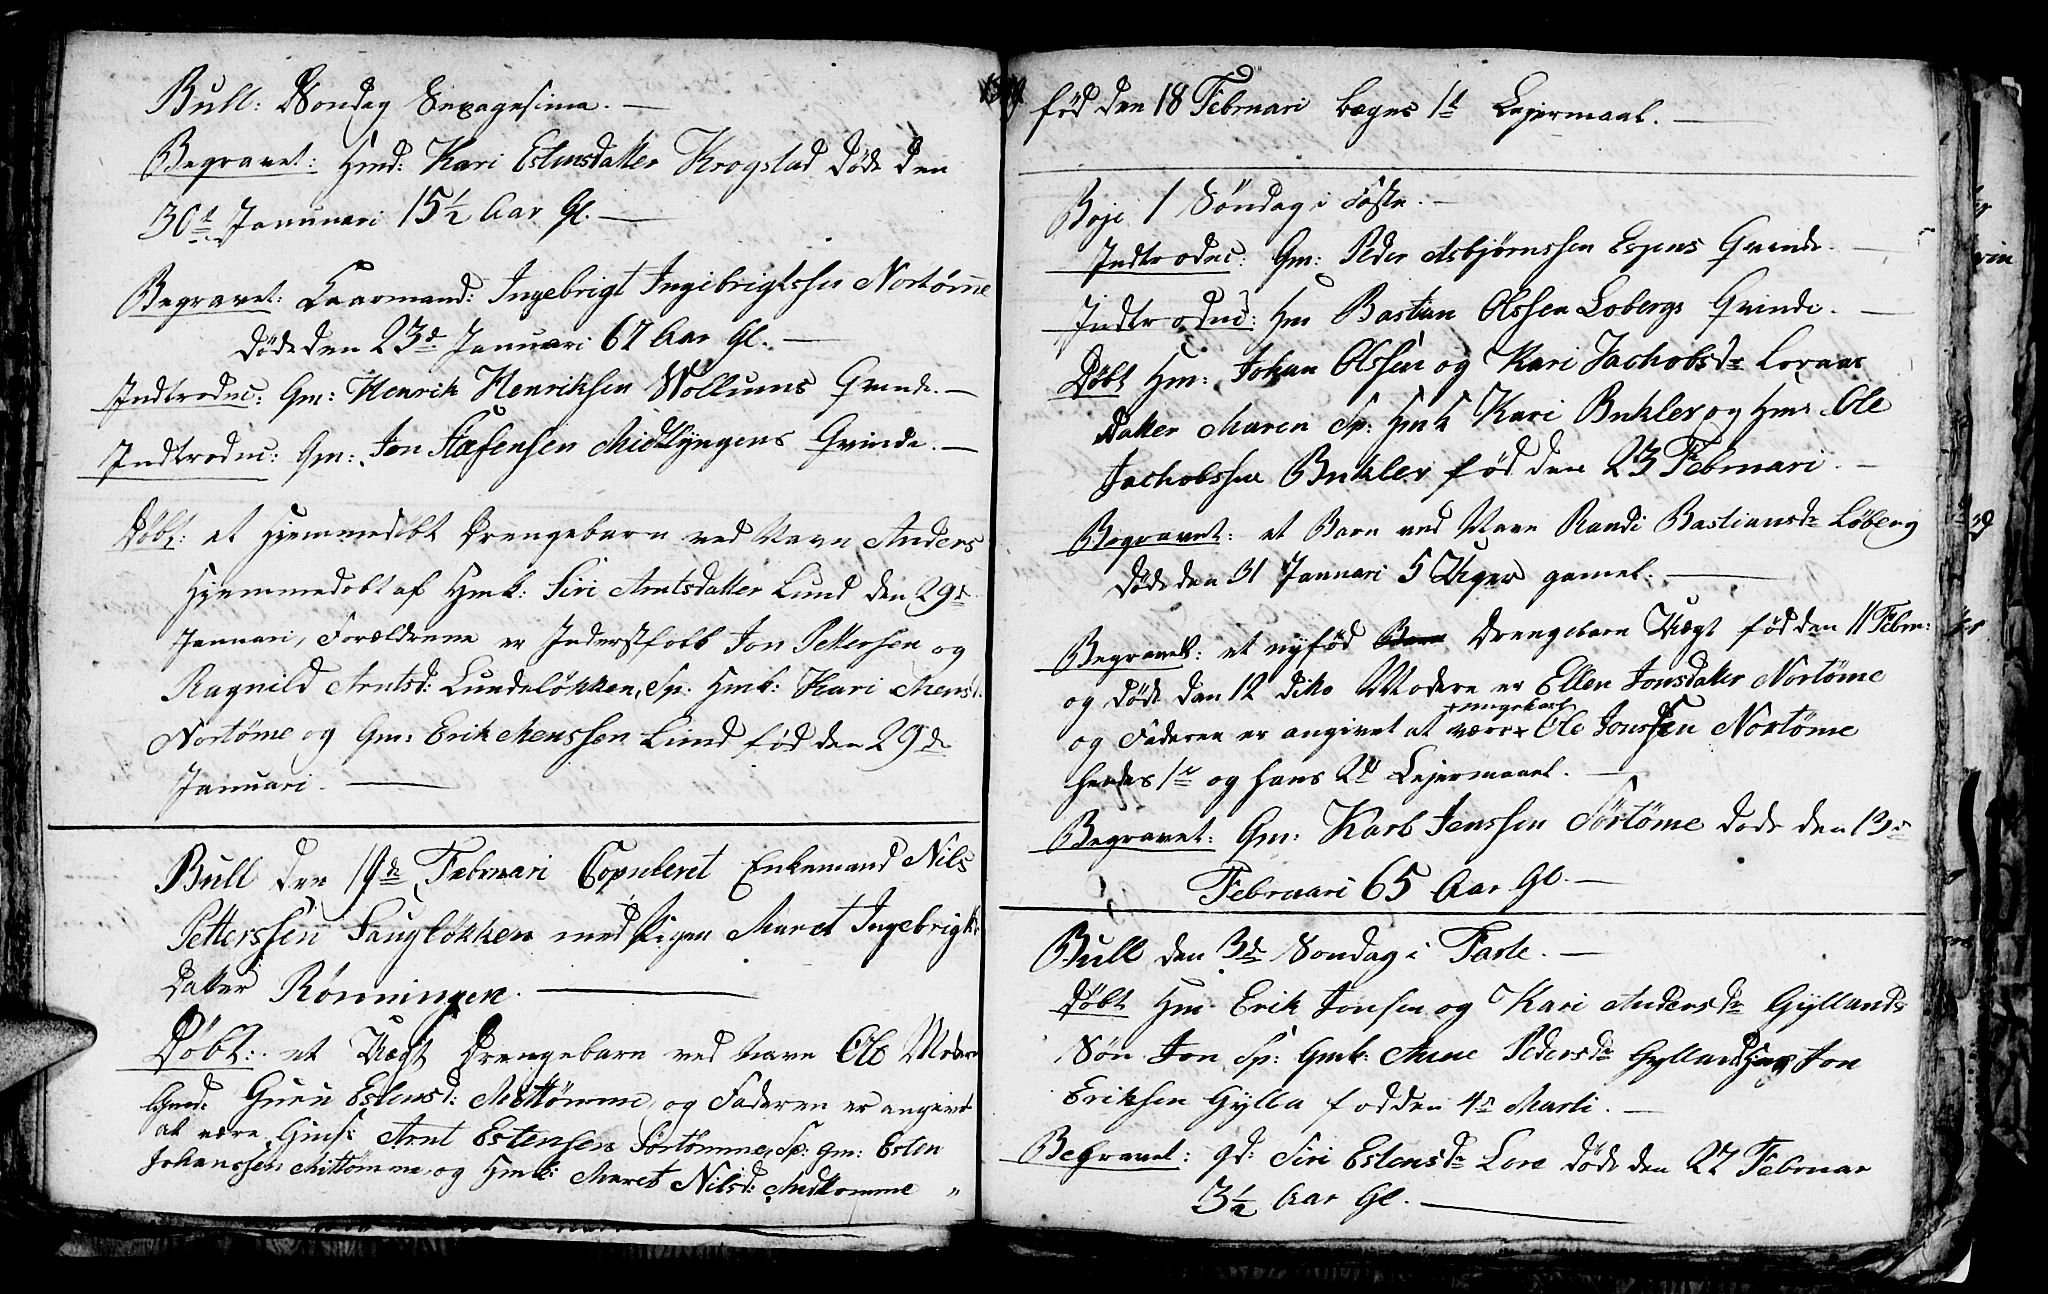 Bull: Søndag Sexagesima. —
Begravet: Hmd: Kari Estensdatter Krogstad døde den
30te Januari 15½ Aar Gl. —
Begravet: Laarmand: Ingebrigt Ingibrigtssen Nortømme
døde den 23de Januari 67 Aar Gl. —
Indtroduc: Gm: Henrik Henriksen Wollums Qvinde. —
Indtroduc: Gm: Jon Stefensen Midtlyngens Qvinde. —
Døbt: et Hjemmedøbt Drengebarn ved Navn Anders
Hjemmedøbt af Hmk: Siri Arntsdatter Lund den 29de
Januari, Forældrene er Inderstfolk Jon Pettersen og
Ragnild Arntsd: Lundeløkken, Sp: Hmk: Kari Mensd:
Nortøme og Gm: Erik Menssen Lund fød den 29de
Januari. —
Bull den 19de Februari Copuleret Enkemand Nils
Petterssen Haugløkken med Pigen Maret Ingebrigts
datter Rønningen. —
Døbt: et Uægt Drengebarn ved Navn Ole Moderen
Guru Estensd: Mittømme, og Faderen er angivet
at være Arnt Estensen Sørtømme, Sp: Gm: Esten
Johanssen Mittømme, og Hmk: Maret Nilsd: Midtømme "
fød den 18 Februari begges 1t Lejermaal. —
Boje 1 Søndag i Faste. —
Indtroduc: Gm: Peder Asbjørnssen Espens Qvinde. —
Indtroduc: Hm Bastian Olssen Løbergs Qvinde. —
Døbt Hm: Johan Olssen og Kari Jachobsdr Loraas
datter Maren Sp: Hmk Kari Bukler og Hm: Ole
Jachobssen Bukler fød den 23 Februari. —
Begravet: et Barn ved Navn Randi Bastiansdr Løberg
døde den 31 Januari 5 Uger gamel. —
Begravet: et nyfød Barn Drengebarn Uægt fød den 11 Febru:
og døde den 12 dito Moderen er Ellen Jonsdatter Nortøme
og Faderen er angivet at være Ungekarl Ole Jonssen Nortøme
hendes 1te og hans 2de Lejermaael. —
Begravet: Gm: Karl Jenssen Sørtøme døde den 13de
Februari 65 Aar Gl. —
Bull den 3de Søndag i Faste. —
Døbt Hm. Erik Jonsen og Kari Andersdr Gyllands
Søn Jon Sp: Gmk: Anne Pedersdr Gylland Jon
Eriksen Gylla fød den 4de Marti. —
Begravet: Siri Estensdr Lore døde den 27 Februar
3½ Aar Gl. —